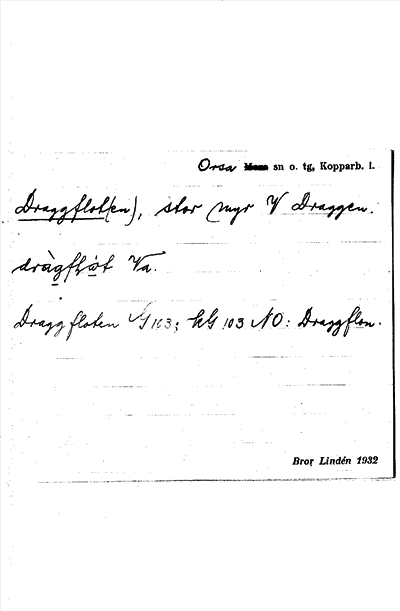 Orsa sn o. tg, Kopparb. l.
Draggflot(en), stor myr V Draggen.
Va.
Draggfloten G 103; hG 103 NO: Draggflon.
Bror Lindén 1932